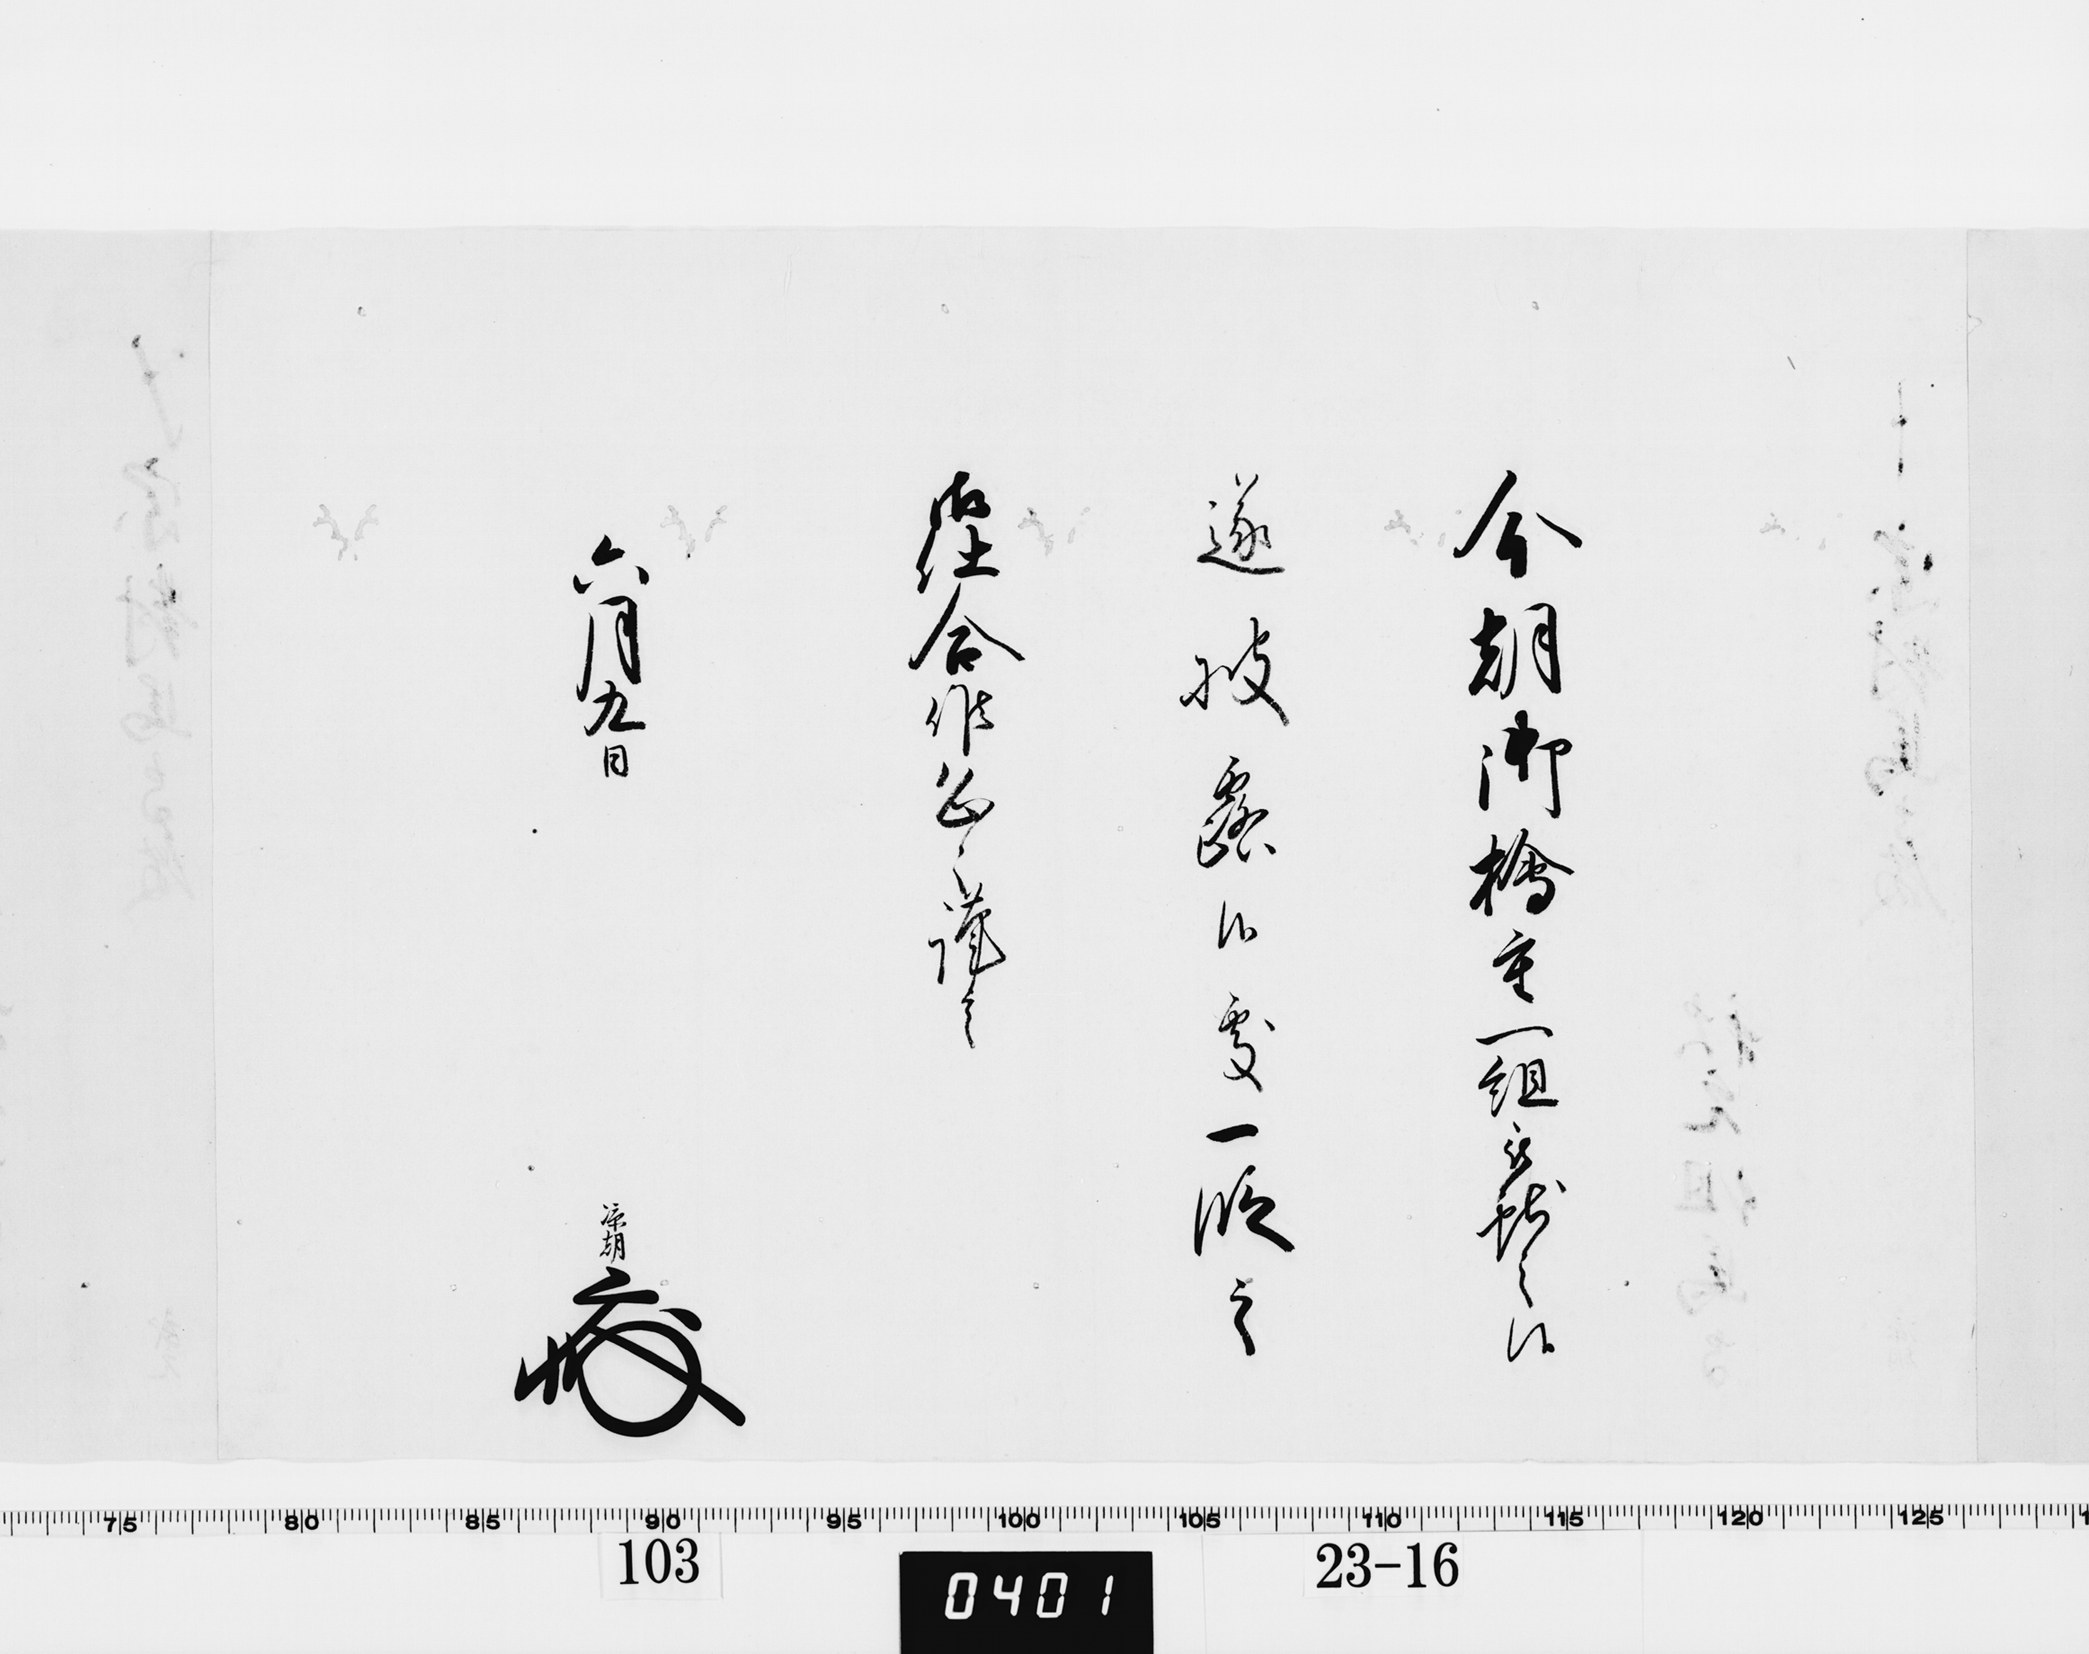 今朝御檜重一組被献之候
遂披露候處一段之
御仕合作
謹言
六月九日
75 80 85 90 95 100 105 110 115 120 125
103
0401
23-16